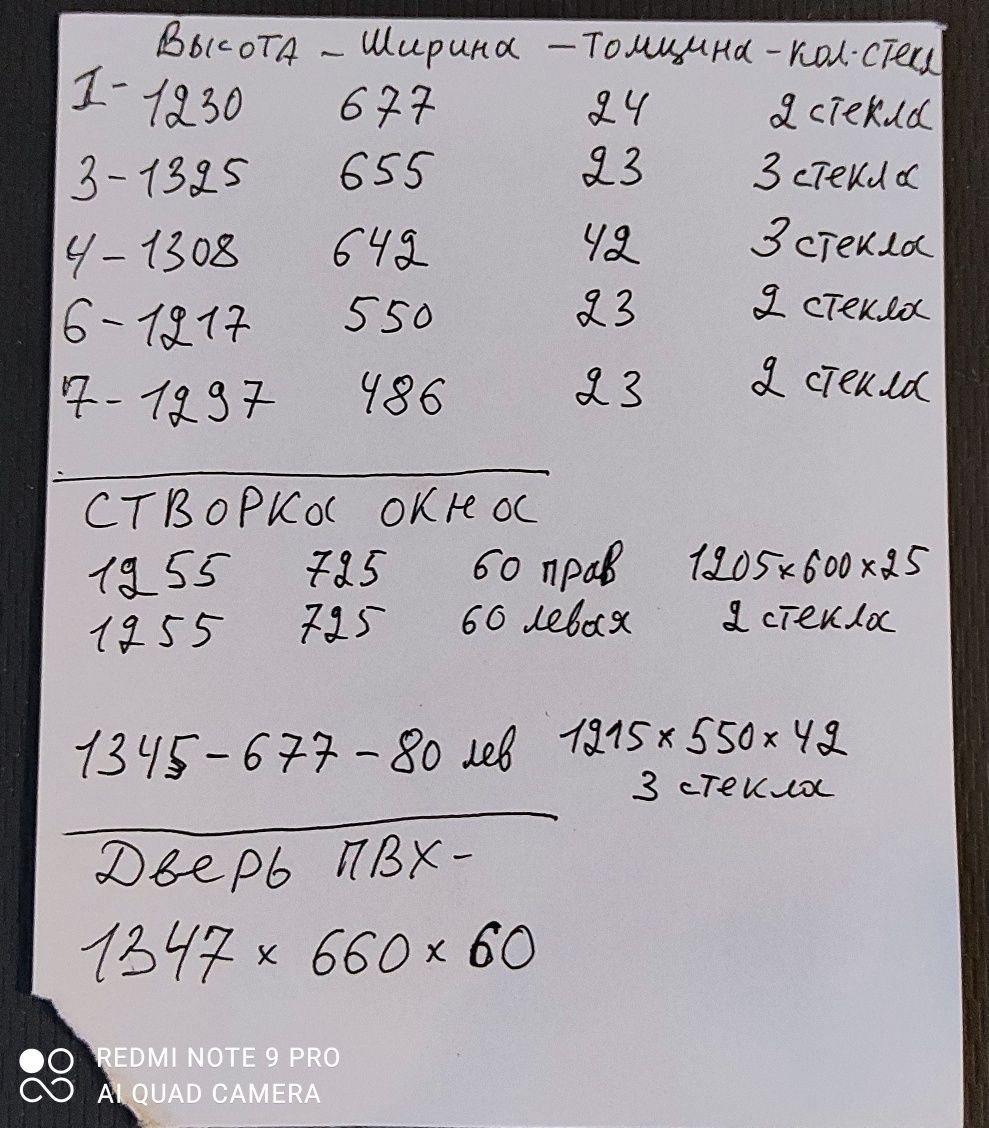 Высота - Ширина - Толщина - кол-стекл
1 - 1230 677 24 2 стекла
3 - 1325 655 23 3 стекла
4 - 1308 642 42 3 стекла
6 - 1217 550 23 2 стекла
7 - 1297 486 23 2 стекла
СТВОРКА ОКНА
1255 725 60 прав 1205x600x25
1255 725 60 левая 2 стекла
1345 - 677 - 80 лев 1215x550x42
3 стекла
Дверь ПВХ -
1347 x 660 x 60
REDMI NOTE 9 PRO
AI QUAD CAMERA